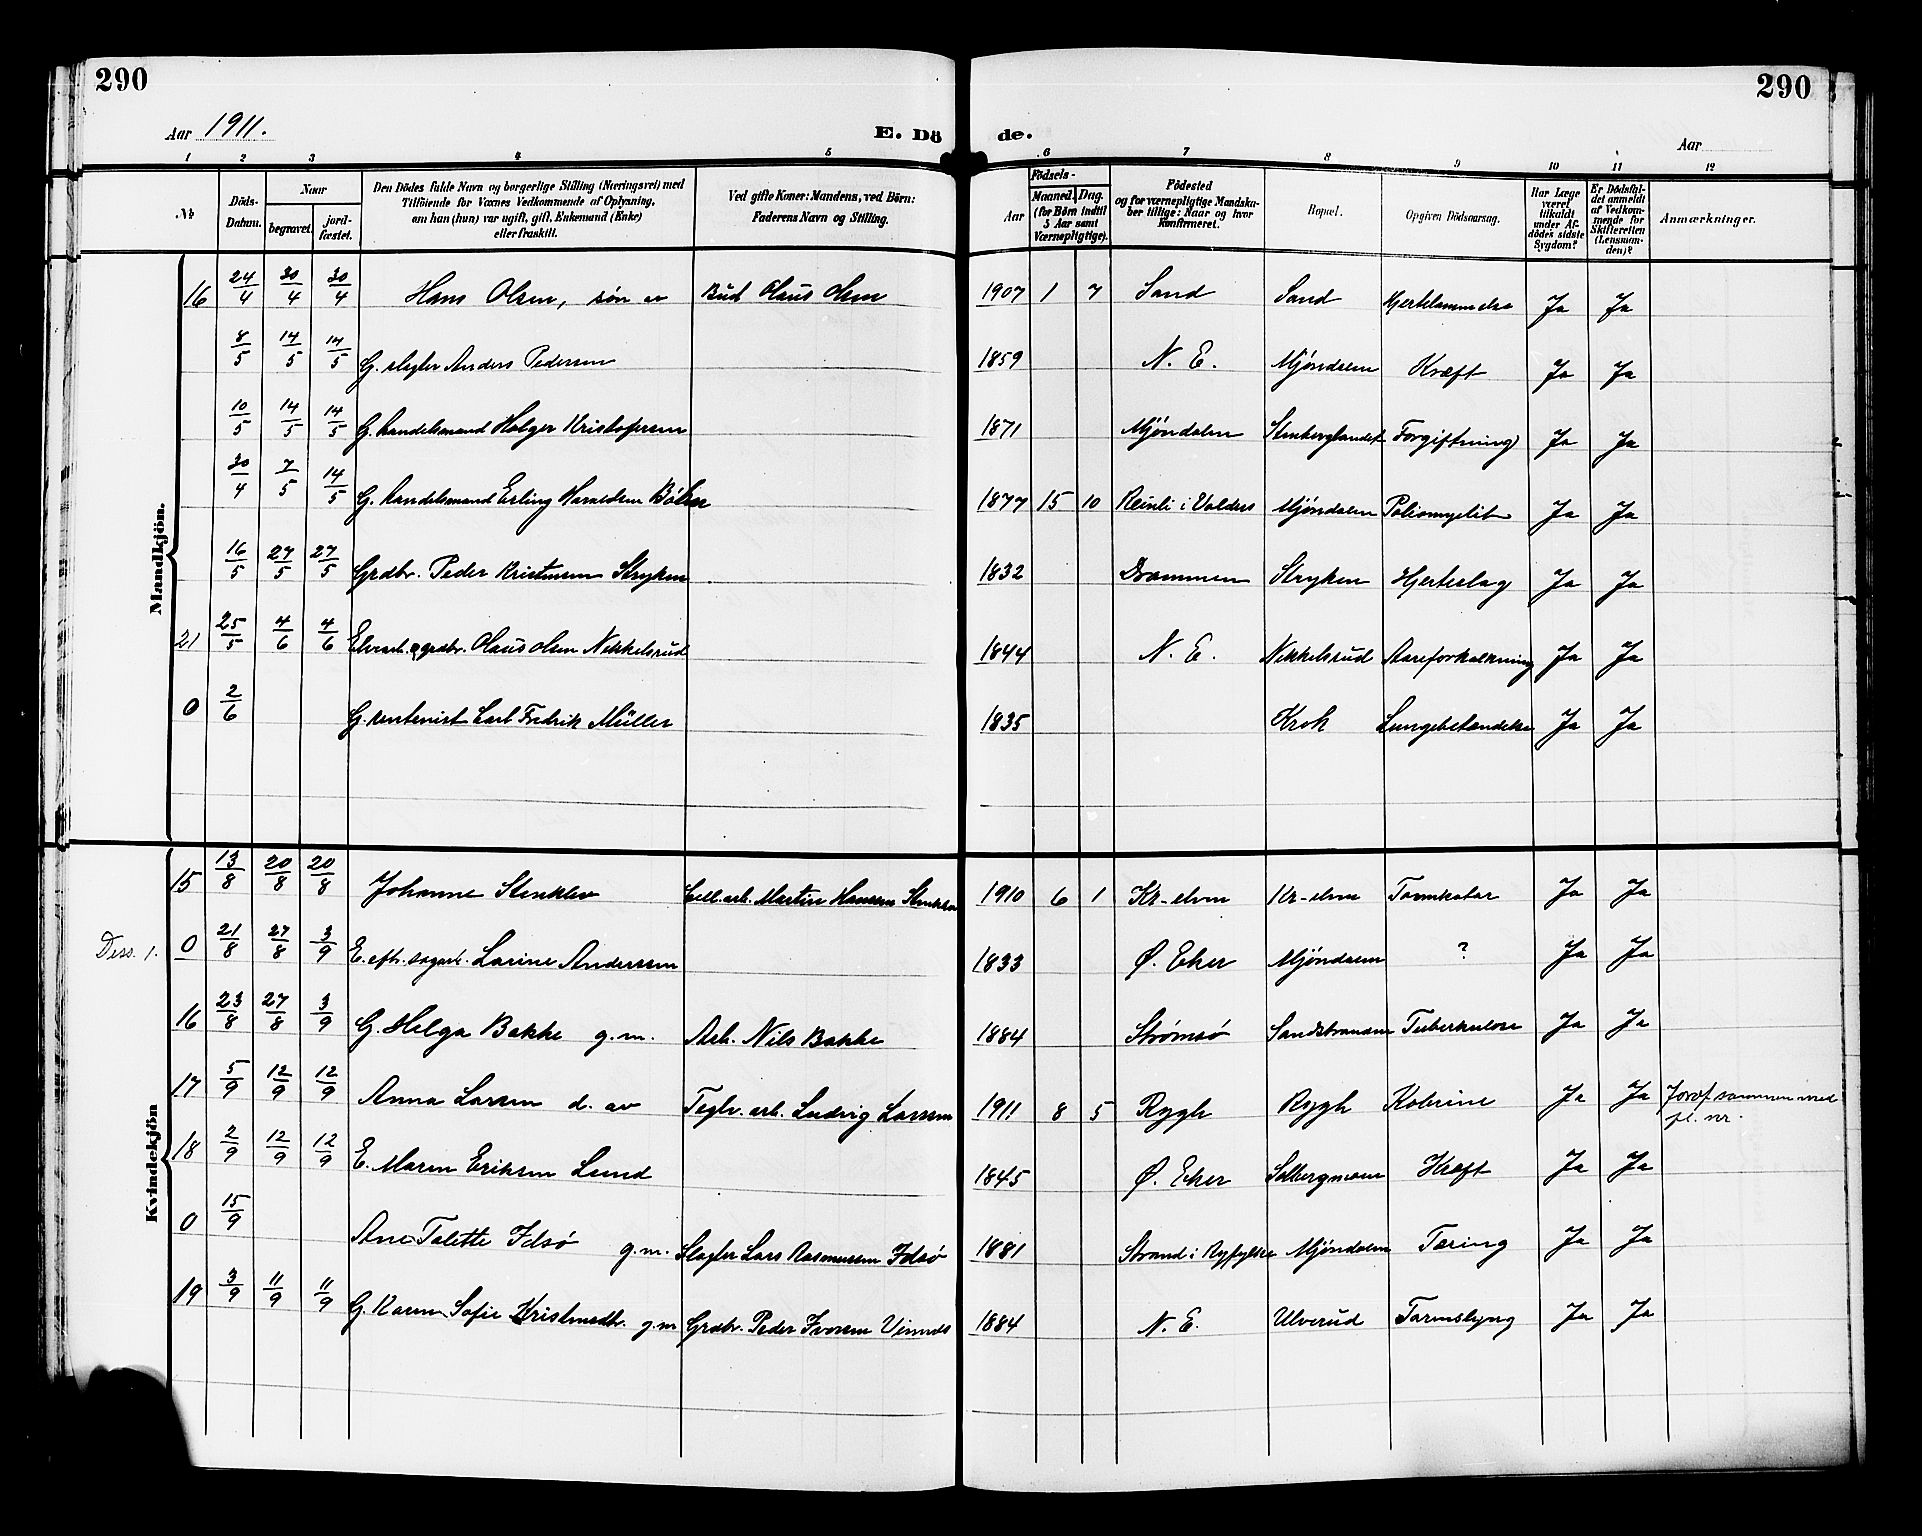 290
290
Aar 1911.
E. Dö
de.
Aar
1 2 3 4 5 6 7 8 9 10 11 12
№
Döds-Datum.
Naar
begravet.
jord-fæstet.
Den Dödes fulde Navn og borgerlige Stilling (Næringsvei) med
Tilföiende for Voxnes Vedkommende af Oplysning,
om han (hun) var ugift, gift, Enkemand (Enke)
eller fraskilt.
Ved gifte Koner: Mandens, ved Börn:
Faderens Navn og Stilling.
Födsels-
Aar
Maaned. Dag.
(for Börn indtil
3 Aar samt
Værnepligtige).
Födested
og for værnepligtige Mandska-
ber tillige: Naar og hvor
konfirmeret.
Bopæl.
Opgiven Dödsaarsag.
Har Læge
været
tilkaldt
under Af-
dödes sidste
Sygdom?
Er Dödsfal-
det anmeldt
af Vedkom-
mende for
Skifteretten
(Lensman-
den)?
Anmærkninger.
Mandkjön.
16 24/4 30/4 30/4 Hans Olsen, søn av Bud Olaus Olsen 1907 1 7 Sand Sand Hjertelammelse Ja Ja
8/5 14/5 14/5 G. slagter Anders Pedersen 1859 N. E. Mjøndalen Kræft Ja Ja
10/5 14/5 14/5 G. handelsmand Holger Kristofersen 1871 Mjøndalen Stenberglandet Forgiftning Ja Ja
30/4 7/5 14/5 G. handelsmand Erling Haraldsen Bøhn 1877 15 10 Reinli i Valders Mjøndalen Poliomyelit Ja Ja
16/5 27/5 27/5 Grdbr. Peder Kristensen Stryken 1832 Drammen Stryken Hjerteslag Ja Ja
21 25/5 4/6 4/6 Elvearb. og grdbr. Olaus Olsen Nekkelsrud 1844 N. E. Nekkelsrud Aareforkalkning Ja Ja
0 2/6 G. rentenist Carl Fredrik Müller 1835 Krok Lungebetændelse Ja Ja
Kvindekjön
15 13/8 20/8 20/8 Johanne Stenklev Cell. arb. Martin Hansen Stenklev 1910 6 1 Kr-elven Kr-elven Tarmkatar Ja Ja
Diss. 1. 0 21/8 27/8 3/9 E. eft. sagarb. Larine Andersen 1833 Ø. Eker Mjøndalen ? Ja Ja
16 23/8 27/8 3/9 G. Helga Bakke g. m. Arb. Nils Bakke 1884 Strømsø Sandstranden Tuberkulose Ja Ja
17 5/9 12/9 12/9 Anna Larsen d. av Teglv. arb. Ludvig Larsen 1911 8 5 Rygh Rygh Kolerine Ja Ja Jordf. sammen med
fl. nr.
18 2/9 12/9 12/9 E. Maren Eriksen Lund 1845 Ø. Eker Solbergmoen Kræft Ja Ja
0 15/9 Ane Talette Idsø g. m. Slagter Lars Rasmussen Idsø 1881 Strand i Ryfylke Mjøndalen Tæring Ja Ja
19 3/9 11/9 11/9 G. Karen Sofie Kristinedtr. g. m. Grdbr. Peder Iversen 1884 N. E. Ulverud Tarmslyng Ja Ja